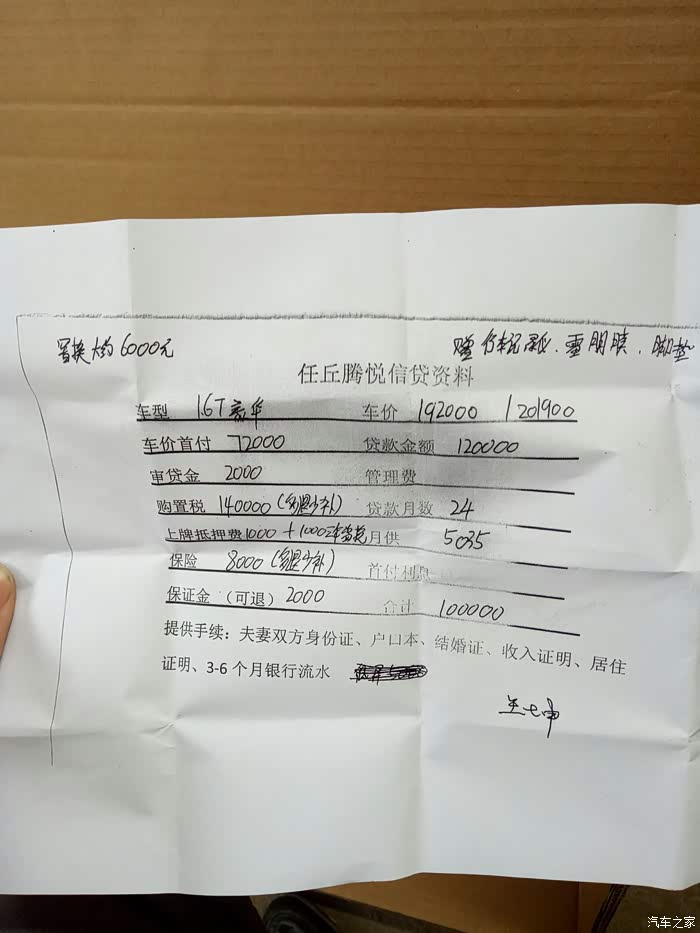 置换大约6000元
赠行车记录仪、雷朋膜、脚垫
任丘腾悦信贷资料
车型 1.6T豪华 车价 192000 / 201900
车价首付 72000 贷款金额 120000
审贷金 2000 管理费
购置税 140000(多退少补) 贷款月数 24
上牌抵押费1000 + 1000 月供 5035
保险 8000(多退少补) 首付利息
保证金(可退)2000 合计 100000
提供手续：夫妻双方身份证、户口本、结婚证、收入证明、居住
证明、3-6个月银行流水
汽车之家